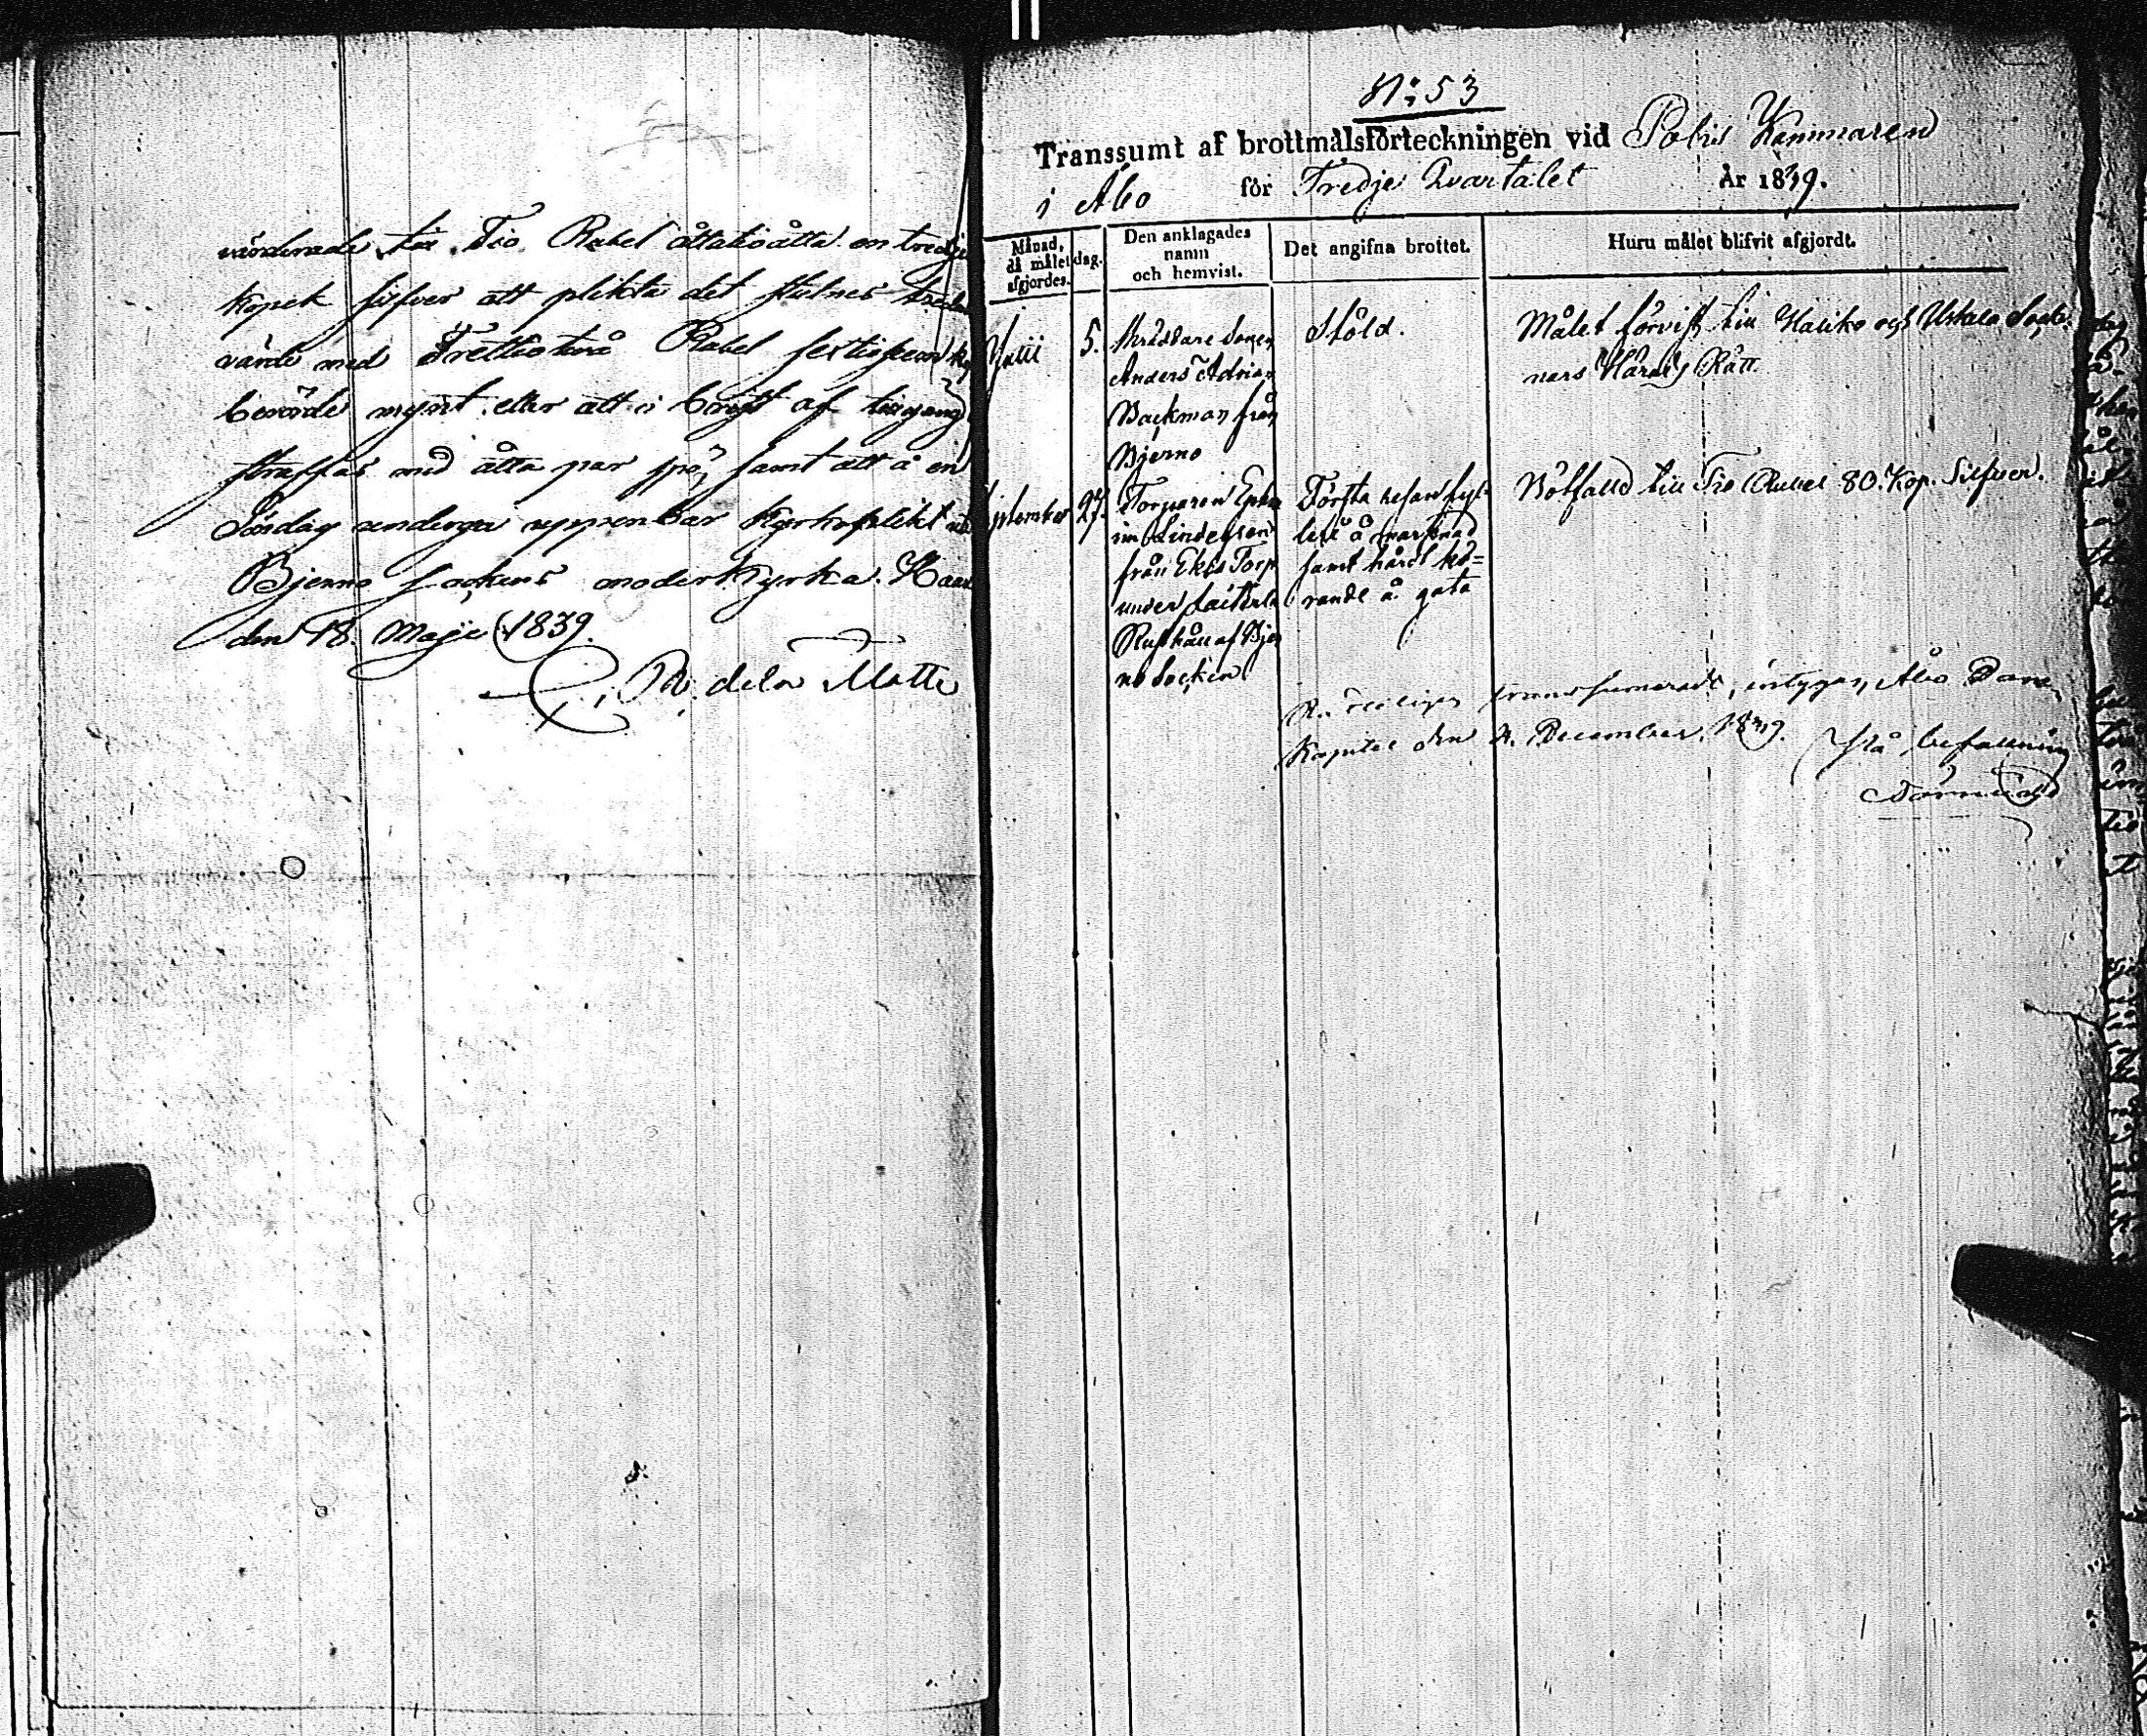 värderade till Tio Rubel åttatioåtta en tredje
kopek silfver att plikta det stulnes tredubla
värde med Trettiotvå Rubel sextiofem
beroörde mynt eller att i brist af tillgång
straffas med åtta par spö, samt att å en
Söndag undergå uppenbar Kyrkoplikt uti
Bjerno sockens moderkyrka.
den 18. Maji 1839.
de la Motte
N:o 53
Transsumt af brottmålsförteckningen vid Polis Kammaren
i Åbo för Tredje Qvartalet År 1839.
Månad, då målet afgjordes. dag. Den anklagades namn och hemvist. Det angifna brottet. Huru målet blifvit afgjordt.
Julii 5. Skräddare Sonen Stöld. Målet förvist till Haliko och Uskela Socke-
Anders Adrian nars Härads Rätt.
Backman från
Bjerno
September 27. Torparen Första resan fyl- Bötfälld till Tio Rubel 80. Kop. Silfver.
Lindefsen leri å marknad
från Ekes Torp samt hårdt kö-
under rande å gata
Rusthåll af Bjer
no Socken
transsumeradt, intygar, Åbo Dom
Kapitel den 4. December 1839. På befallning